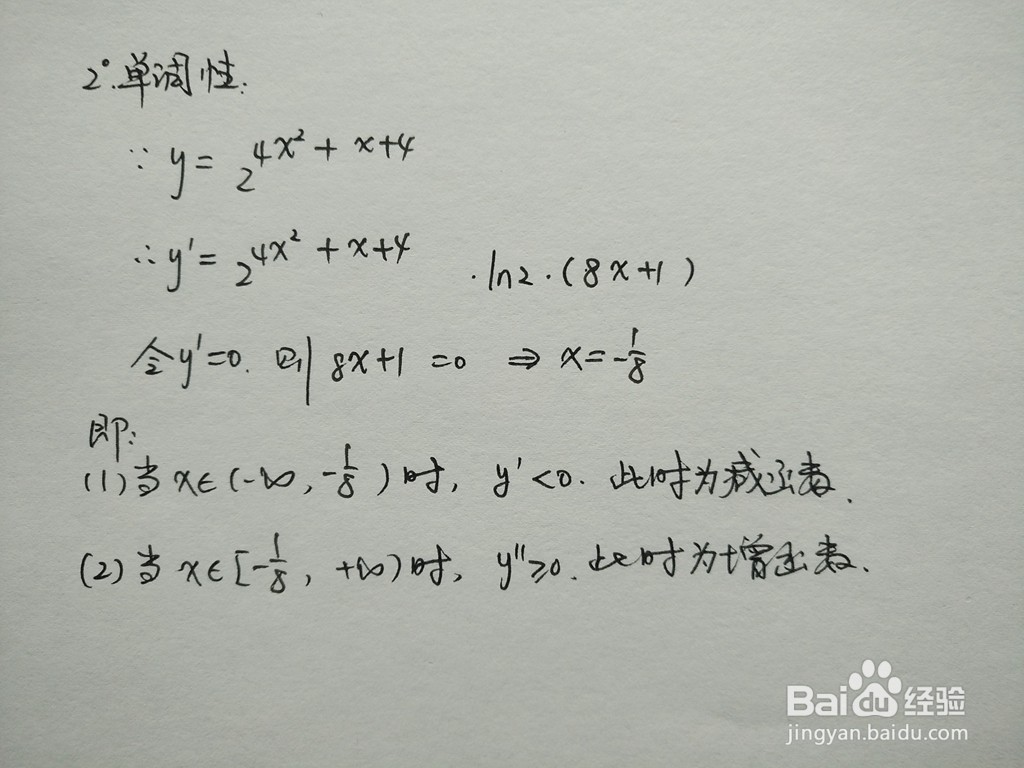 2°.单调性:
∵ y = 2^{4x²+x+4}
∴ y' = 2^{4x²+x+4} · ln2 · (8x+1)
令y'=0. 则 8x+1 =0 ⇒ x=-1/8
即:
(1) 当 x∈(-∞, -1/8) 时, y'<0. 此时为减函数.
(2) 当 x∈[-1/8, +∞) 时, y''≥0. 此时为增函数.
Bai du 经验
jingyan.baidu.com